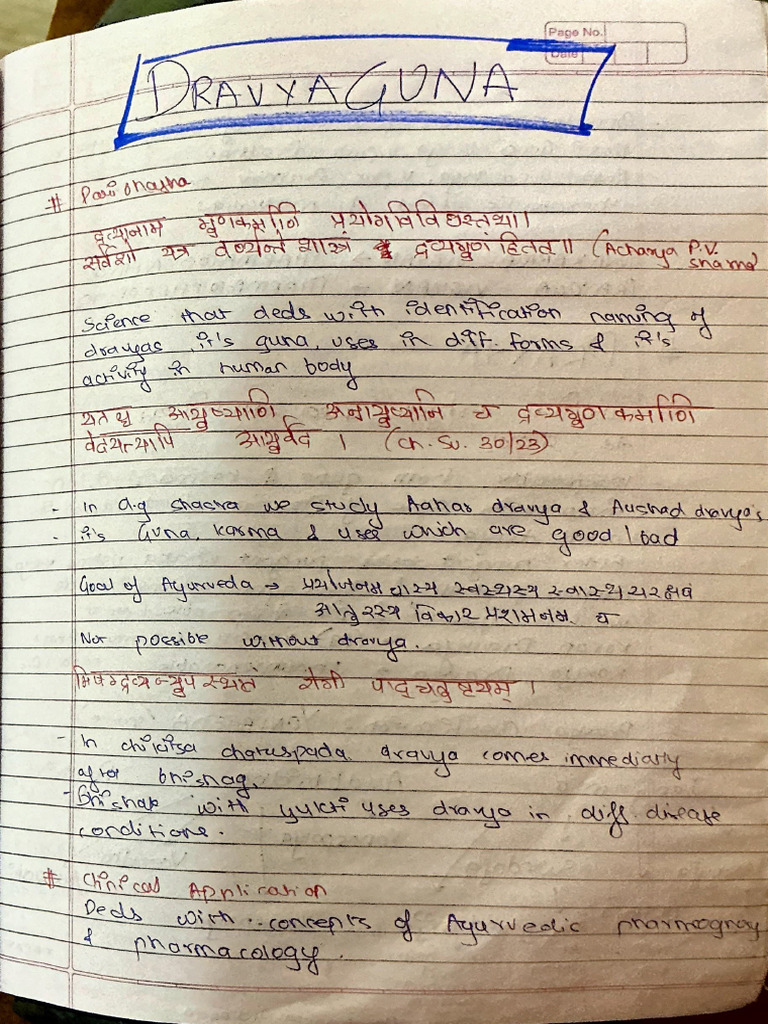 Page No.
Date
DRAVYAGUNA
# Paribhasha
द्रव्यानाम गुणकर्माणि प्रयोगविविधस्तथा।
सर्वशो यत्र वर्ण्यन्ते शास्त्रं द्रव्यगुणं हितत॥ (Acharya P.V.
Sharma
Science that deds with identification naming of
dravyas, it's guna, uses in diff. forms & it's
activity in human body
यतश्च आयुष्याणि अनायुष्यानि च द्रव्यगुणकर्माणि
वेदयत्यापि आयुर्वेद । (Ch. Su. 30/23)
- In d.g shastra we study Aahar dravya & Aushad dravya's
- it's Guna, karma & uses which are good / bad
Goal of Ayurveda → प्रयोजनम चास्य स्वस्थस्य स्वास्थ्य
आतुरस्य विकार प्रशमनम च
Not possible without dravya.
रोगी पादचतुष्टयम् ।
- In chikitsa chatuspada dravya comes immediatly
after bhishag.
- Bhishak with yukti uses dravya in diff disease
conditions.
# Clinical Application
Deds with concepts of Ayurvedic pharmcognoy
& pharmacology.